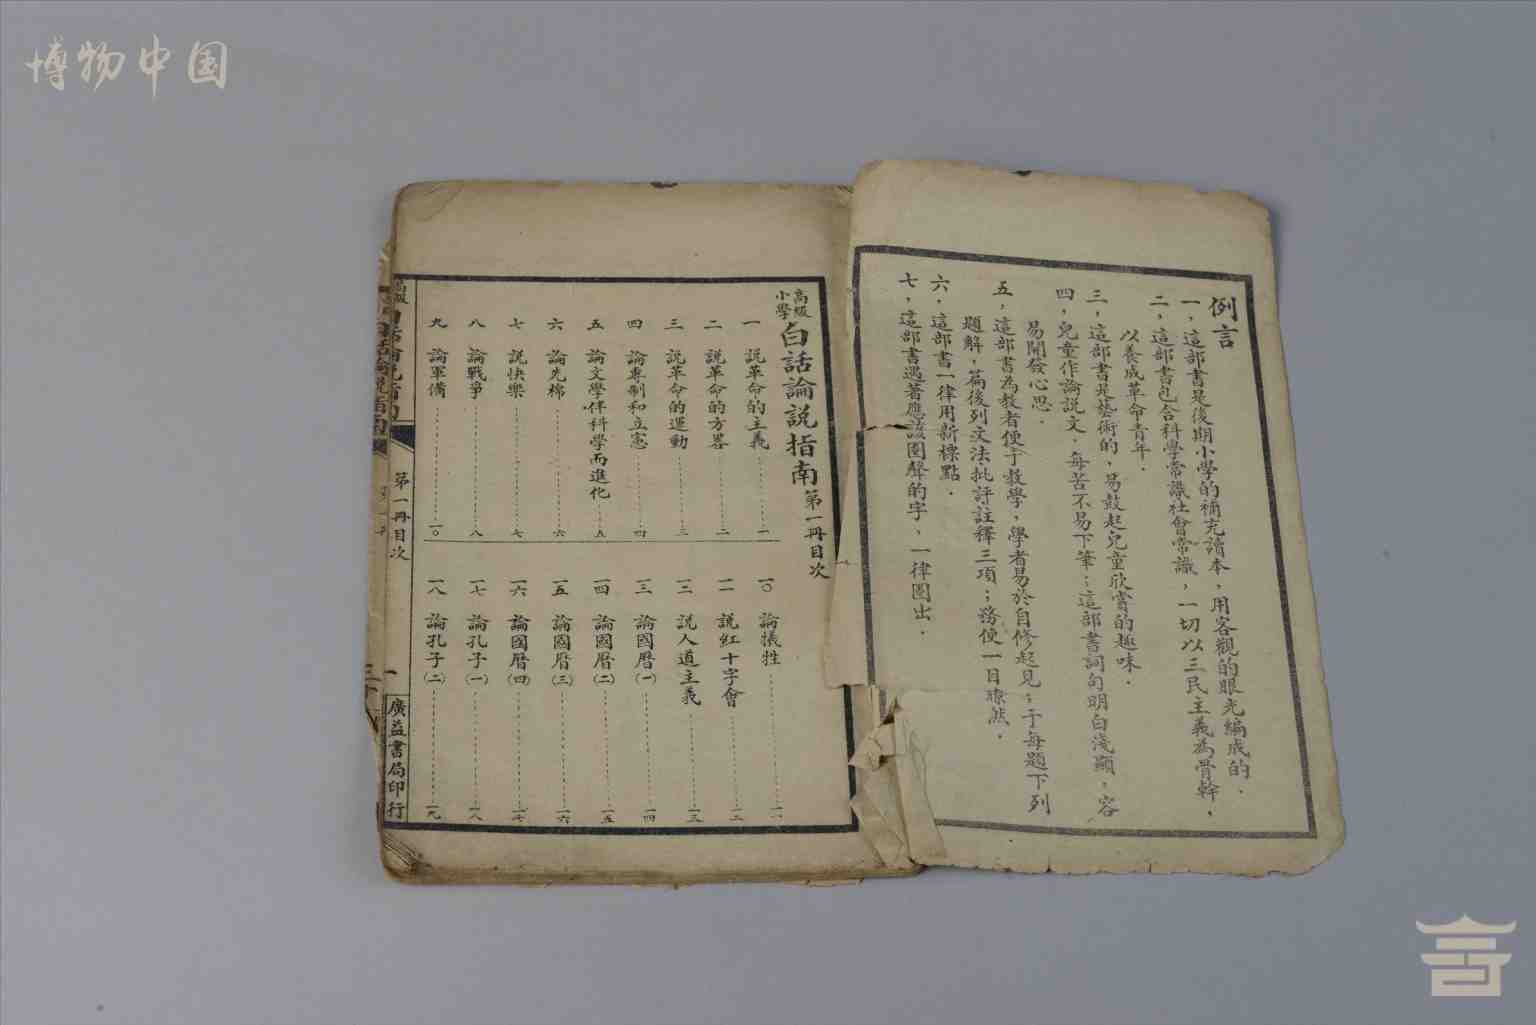 博物中国
例言
一，這部書是後期小學的補充讀本，用客觀的眼光編成的．
二，這部書包含科學常識社會常識，一切以三民主義為骨幹，
以養成革命青年．
三，這部書是藝術的，易鼓起兒童欣賞的趣味．
四，兒童作論說文，每苦不易下筆；這部書詞句明白淺顯，容
易開發心思．
五，這部書為教者便于教學，學者易於自修起見；于每題下列
題解，篇後列文法批評註釋三項；務使一目瞭然．
六，這部書一律用新標點．
七，這部書遇著應該圈聲的字，一律圈出．
高級小學白話論說指南第一冊目次
一 說革命的主義 一
二 說革命的方畧 二
三 說革命的運動 三
四 論專制和立憲 四
五 論文學伴科學而進化 五
六 論先棉 六
七 說快樂 七
八 論戰爭 八
九 論軍備 一〇
一〇 論犧牲 一一
一一 說紅十字會 一二
一二 說人道主義 一三
一三 論國曆(一) 一四
一四 論國曆(二) 一五
一五 論國曆(三) 一六
一六 論國曆(四) 一七
一七 論孔子(一) 一八
一八 論孔子(二) 一九
高級
第一冊目次
一
廣益書局印行